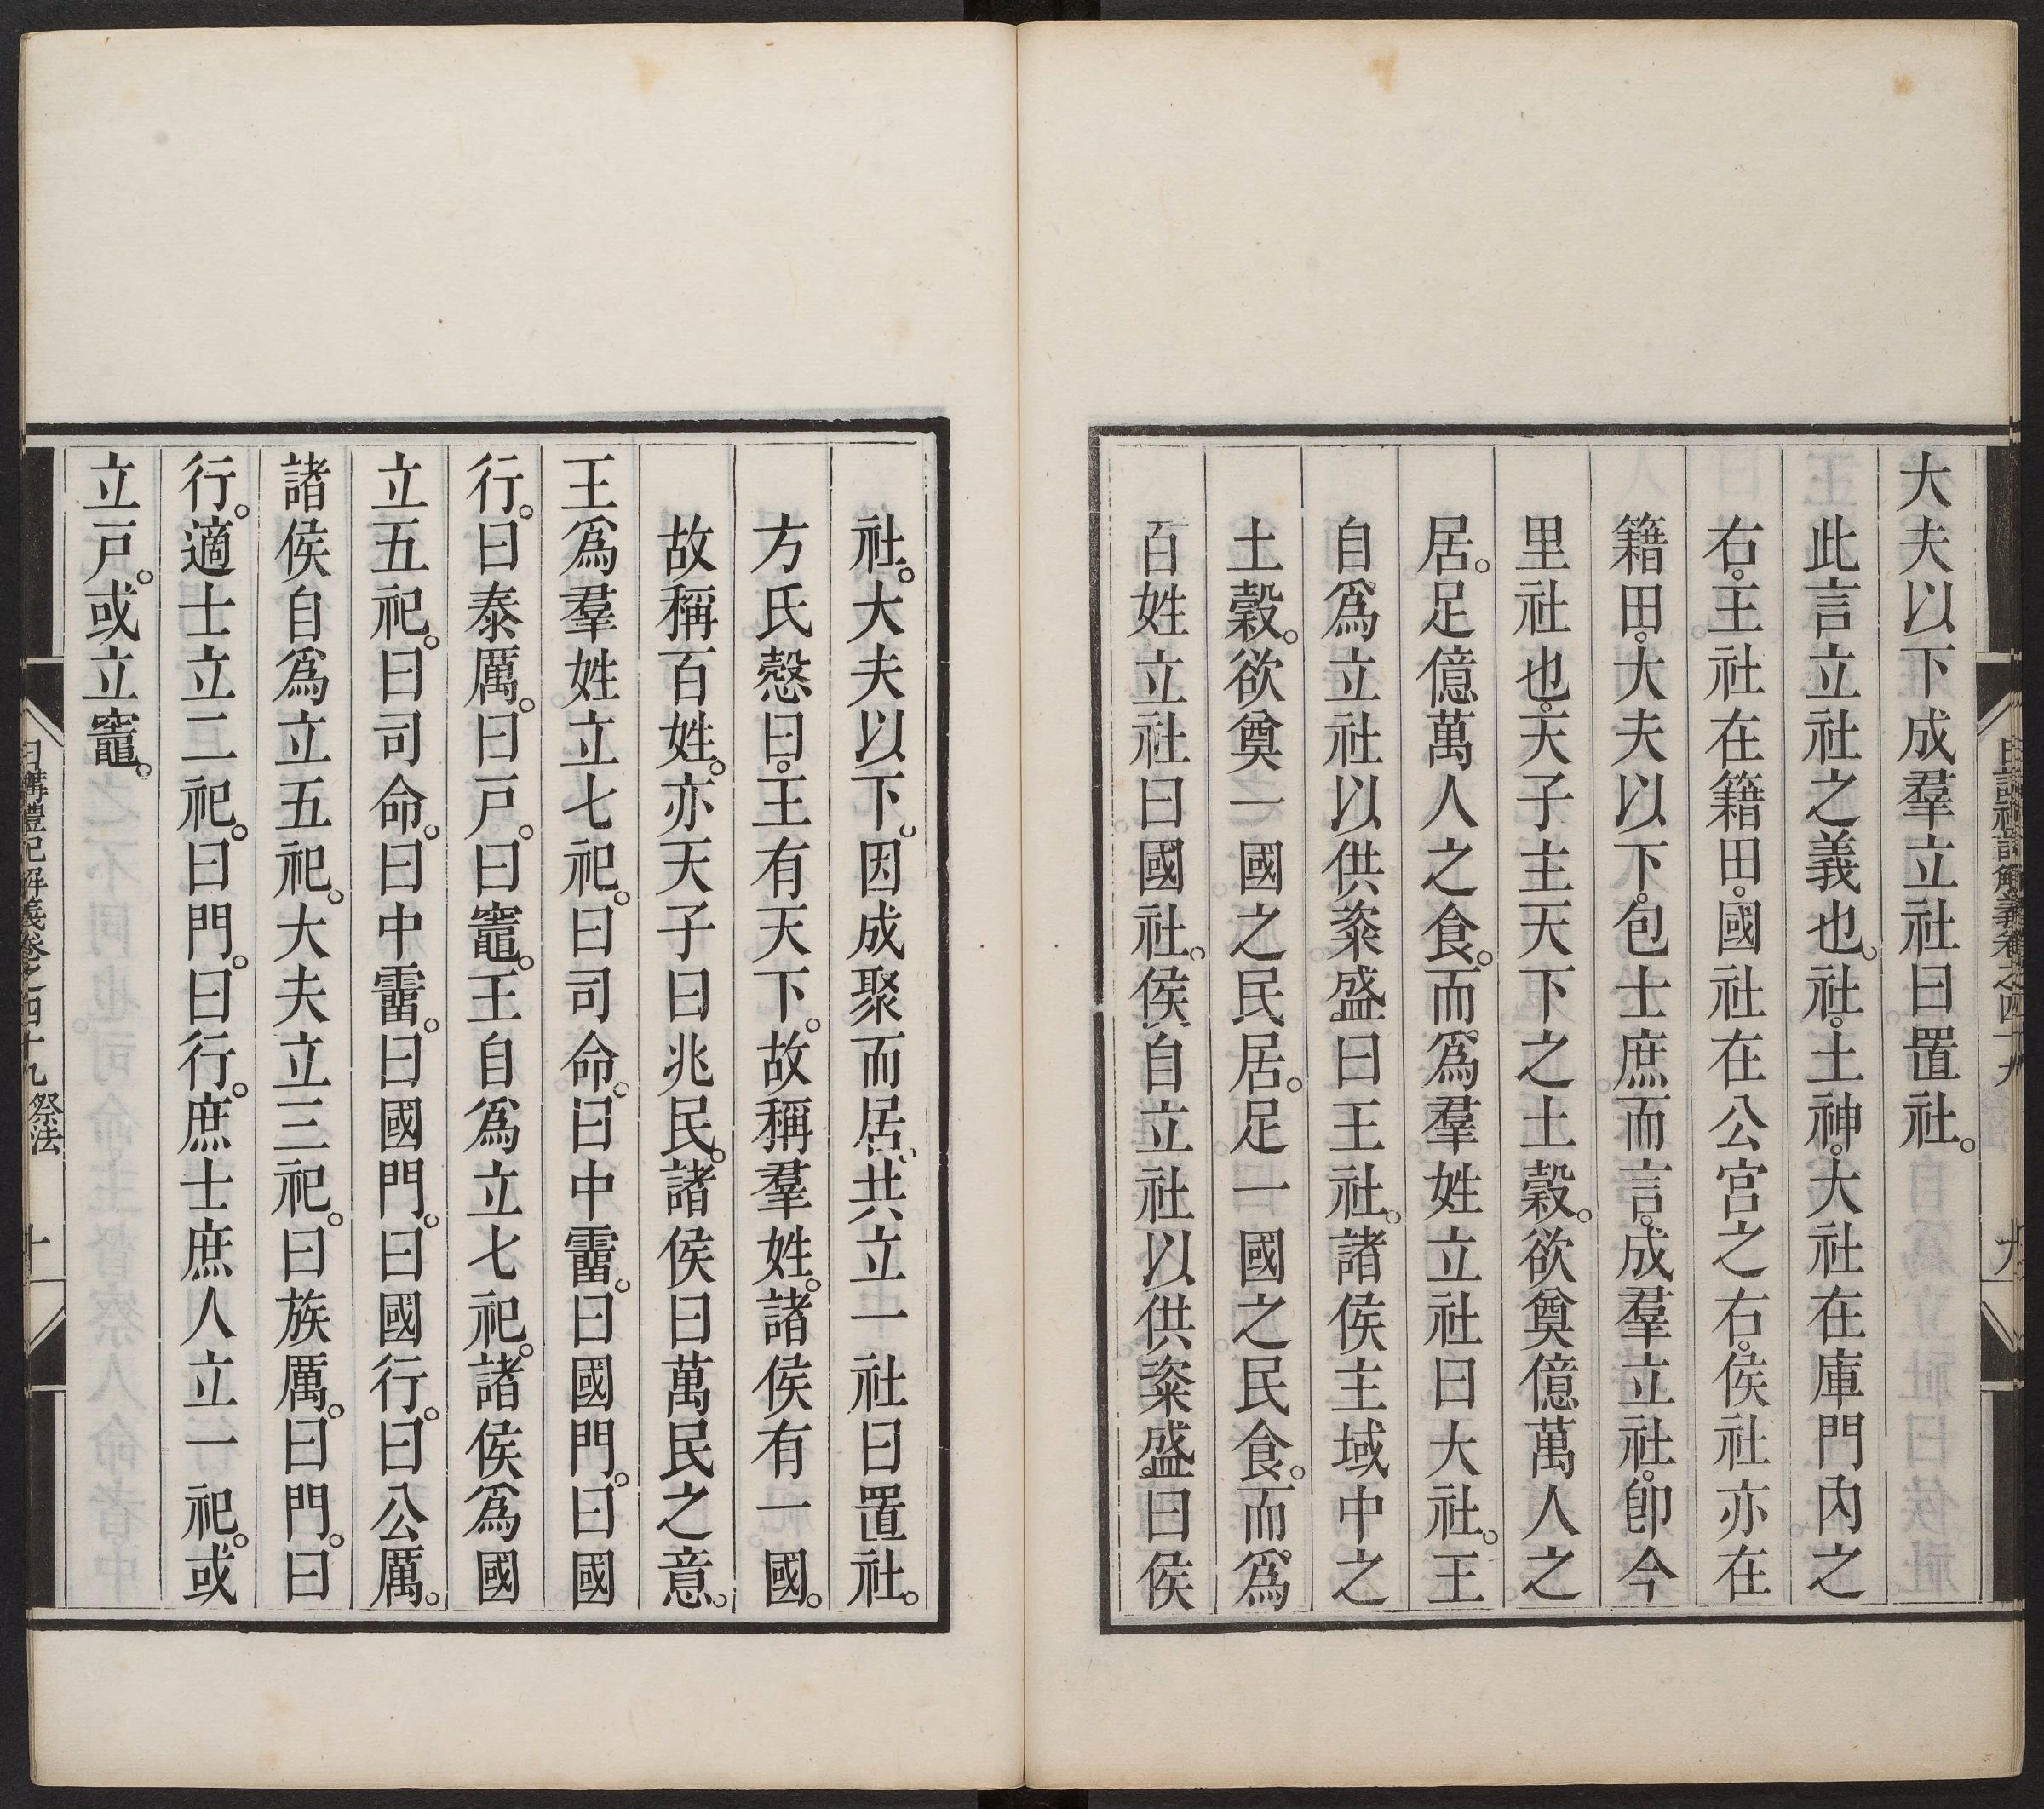 大夫以下成羣立社曰置社。
此言立社之義也。社。土神。大社在庫門內之
右。王社在籍田。國社在公宮之右。侯社亦在
籍田。大夫以下。包士庶而言。成羣立社。卽今
里社也。天子主天下之土穀。欲奠億萬人之
居。足億萬人之食。而爲羣姓立社曰大社。王
自爲立社以供粢盛曰王社。諸侯主域中之
土穀。欲奠一國之民居。足一國之民食。而爲
百姓立社曰國社。侯自立社以供粢盛。曰侯
社。大夫以下。因成聚而居。共立一社曰置社。
方氏慤曰。王有天下。故稱羣姓。諸侯有一國。
故稱百姓。亦天子曰兆民。諸侯曰萬民之意。
王爲羣姓立七祀。曰司命。曰中霤。曰國門。曰國
行。曰泰厲。曰戸。曰竈。王自爲立七祀。諸侯爲國
立五祀。曰司命。曰中霤。曰國門。曰國行。曰公厲。
諸侯自爲立五祀。大夫立三祀。曰族厲。曰門。曰
行。適士立二祀。曰門。曰行。庶士庶人立一祀。或
立戸。或立竈。
日講禮記解義卷之四十九 祭法 十